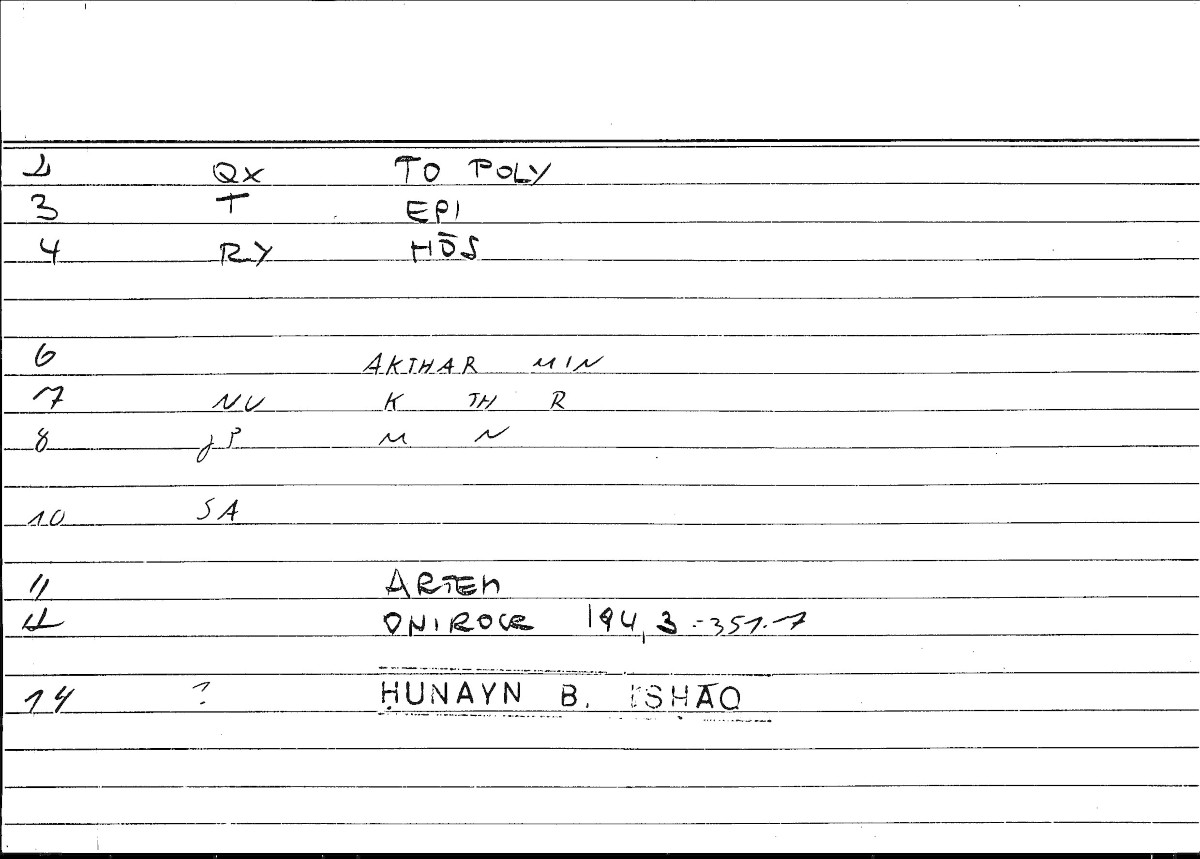 2 QX TO POLY
3 T EPI
4 RY HŌS
6 AKTHAR MIN
7 NU K TH R
8 JP M N
10 SA
11 ARTEM
12 ONIROCR 194,3 - 351.7
14 ? ḤUNAYN B. ISḤĀQ